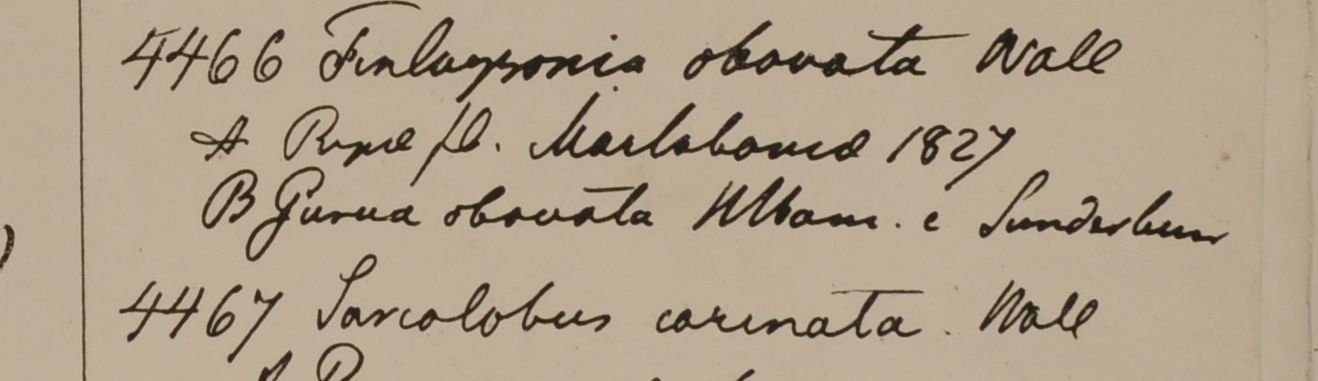 4466 Finlaysonia obovata Wall
A Ripæ fl. Martabaniæ 1827
B Gurua obovata HHam. e Sunderbun
4467 Sarcolobus carinata. Wall